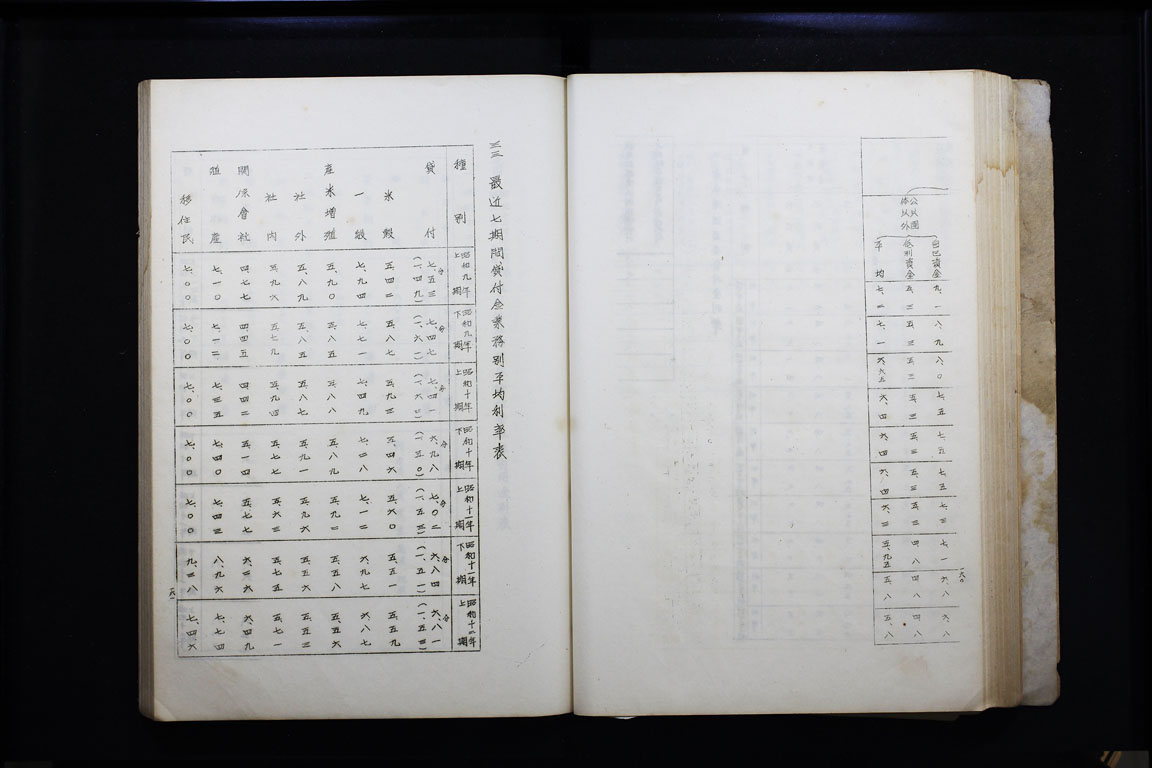 自己資金 九、一 八、九 八、〇 七、五 七、五 七、五 七、三 七、一 六、八 六、八
公共團体以外
低利資金 五、三 五、三 五、三 五、三 五、三 五、三 五、三 四、八 四、八 四、八
平均 七、二 七、一 六、六五 六、四 六、四 六、四 六、三 五、九五 五、八 五、八
一六〇
三三 最近七期間貸付金業務別平均利率表
種別 昭和九年上期 昭和九年下期 昭和十年上期 昭和十年下期 昭和十一年上期 昭和十一年下期 昭和十二年上期
貸付 七、五三分 七、四七分 七、四一分 六、九八分 七、〇二分 六、八四分 六、八一分
(一、四九) (一、六一) (一、六三) (一、五〇) (一、五三) (一、五一) (一、五三)
米穀 五、四二 五、八七 五、九三 五、四六 五、六〇 五、五 五、五九
一般 七、九四 七、七一 七、四九 七、二八 七、一二 六、九七 六、八七
産米増殖 五、九〇 五、八五 五、八八 五、八九 五、九二 五、五八 五、五六
社外 五、八九 五、八五 五、八七 五、九一 五、九六 五、五六 五、五三
社内 五、九六 五、七九 五、九四 五、七七 五、六三 五、七五 五、七一
関係會社 四、七七 四、四五 四、四二 五、一四 五、七七 六、二六 六、四九
殖産 七、一〇 七、一二 七、三五 七、四〇 七、四三 八、九六 七、七四
移住民 七、〇〇 七、〇〇 七、〇〇 七、〇〇 七、〇〇 九、三八 七、四六
一六一